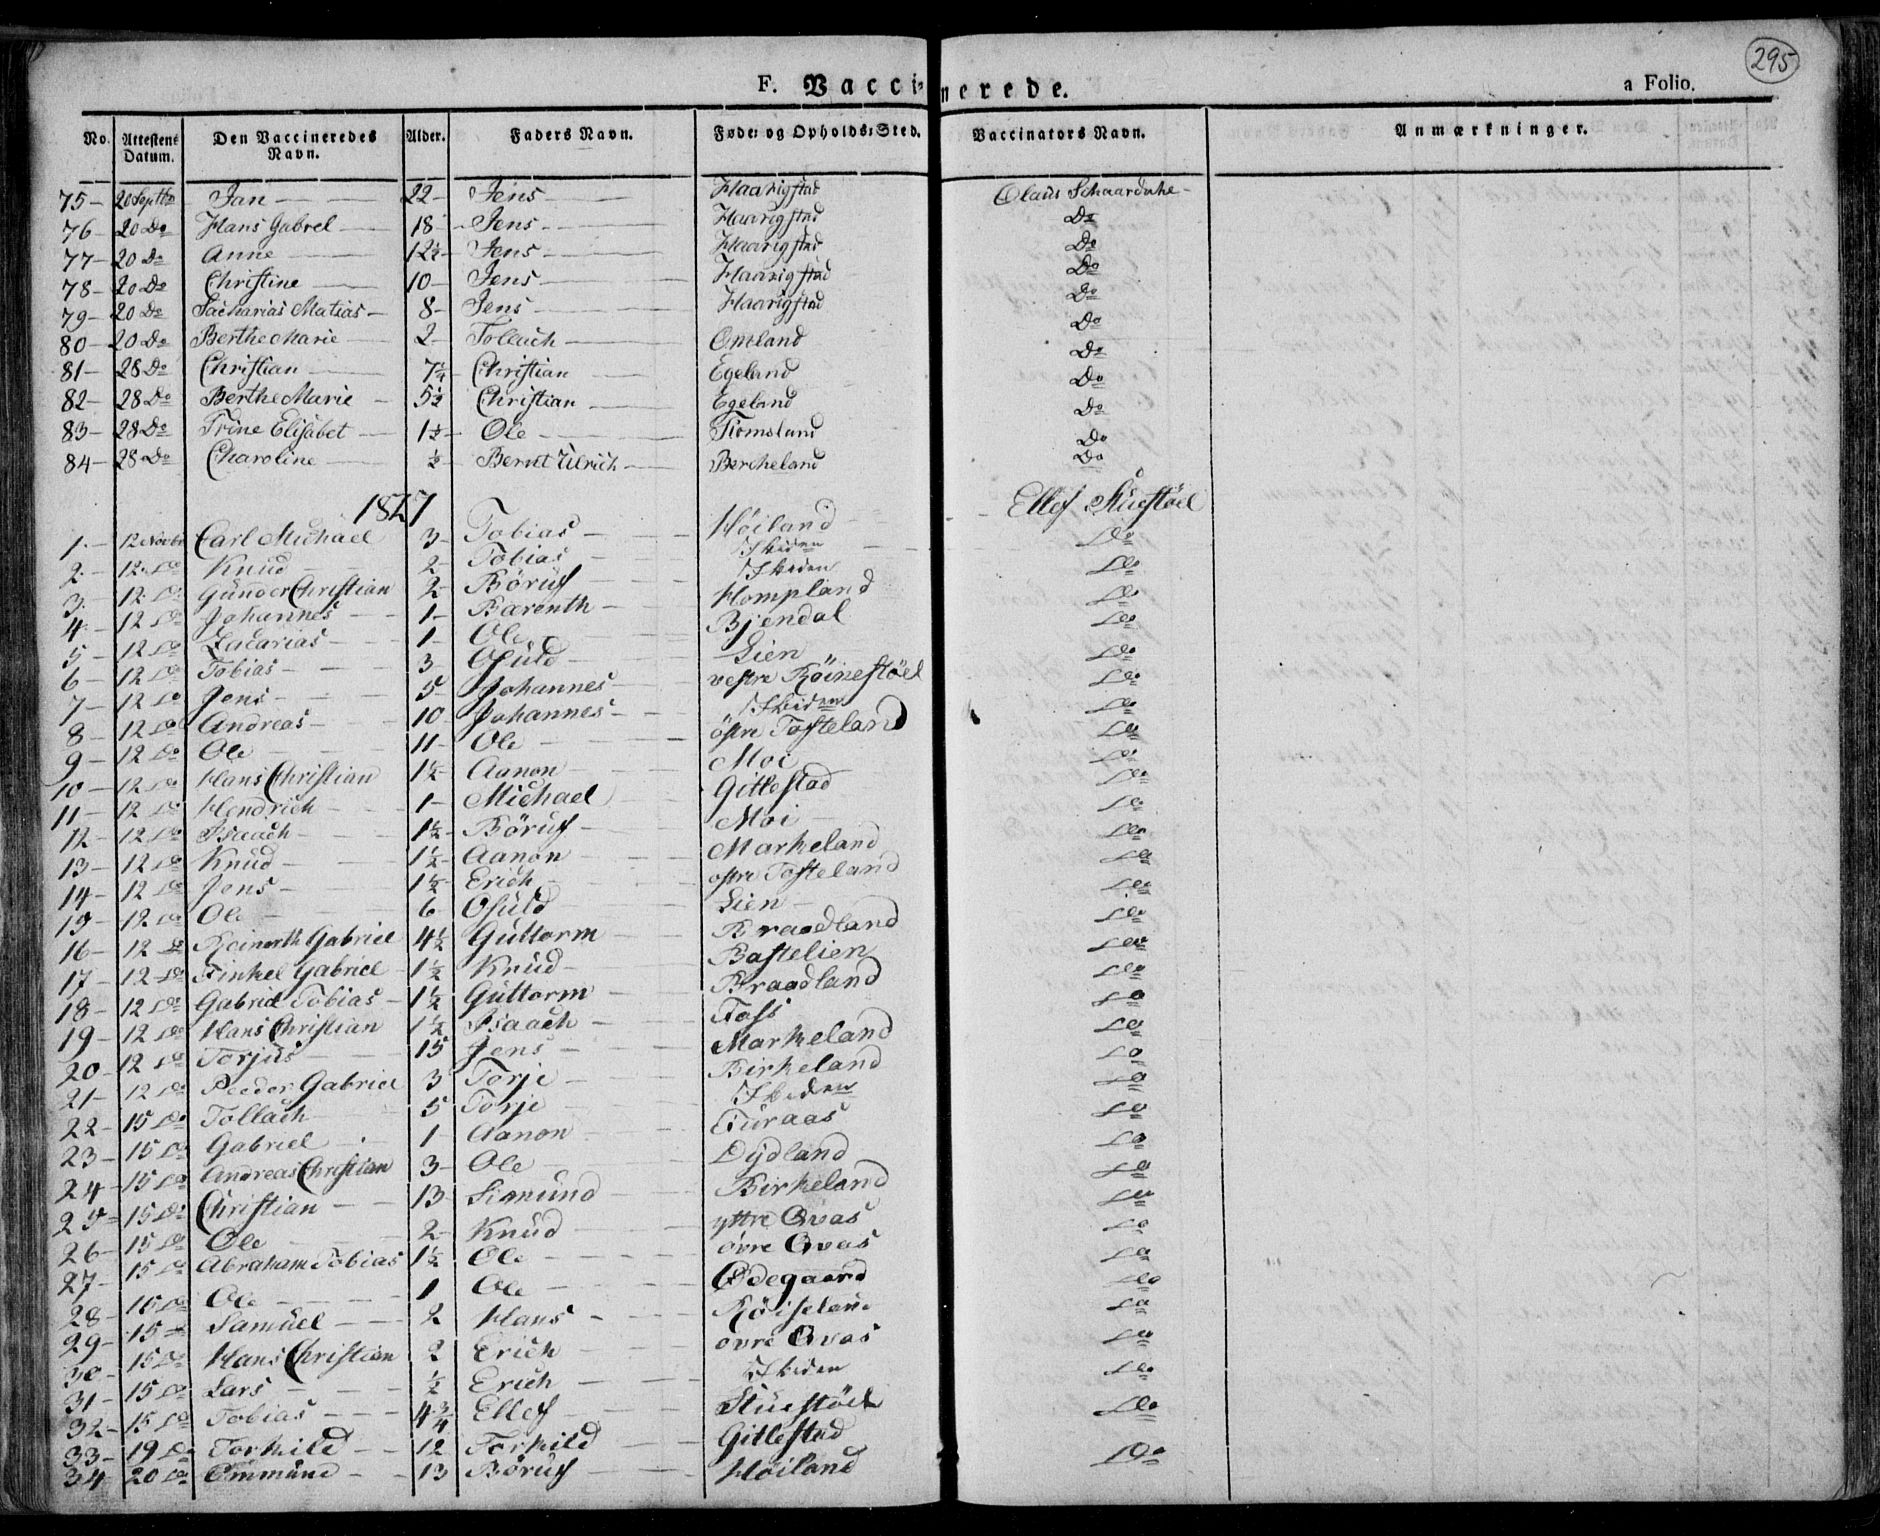 295
F. Vaccinerede. a Folio.
No. Attestens Datum. Den Vaccineredes Navn. Alder. Faders Navn. Føde- og Opholds-Sted. Vaccinators Navn. Anmærkninger.
75- 20 Septbr Jan 22- Jens Haarigstad Olaus
76- 20 Do Hans Gabrel 18- Jens Haarigstad Do
77- 20 Do Anne 12½- Jens Haarigstad Do
78- 20 Do Christine 10- Jens Haarigstad Do
79- 20 Do Sacharias Matias 8- Jens Haarigstad Do
80- 20 Do Berthe Marie 2- Tollach Omland Do
81- 28 Do Christian 7¼- Christian Egeland Do
82- 28 Do Berthe Marie 5½ Christian Egeland Do
83- 28 Do Trine Elisabet 1½- Ole Do
84- 28 Do Charoline ½ Bernt Ulrich Bercheland Do
1827
1.- 12 Novbr Carl Michael 3- Tobias Høiland Ellef Stuestöel
2.- 12 Do Knud 2- Tobias Skeden Do
3. 12 Do Gunder Christian 2 Böruf Skeden Do
4. 12 Do Johannes 1- Barenth Hompland Do
5- 12 Do Zacarias 1- Ole Bjendal Do
6- 12 Do Tobias 3- Osuld Lien Do
7- 12 Do Jens 5- Johannes vestre Röinestöel Do
8- 12 Do Andreas 10- Johannes Skeden Do
9- 12 Do Ole 11- Ole östre Tosteland Do
10- 12 Do Hans Christian 1½- Aanon Moi Do
11- 12 Do Hendrich 1- Michael Gitlestad Do
12- 12 Do Isaach 1½- Böruf Moi Do
13- 12 Do Knud 1½- Aanon Markeland Do
14- 12 Do Jens 1½- Erich östre Tosteland Do
15- 12 Do Ole 6 Osuld Lien Do
16- 12 Do Reinerth Gabriel 4½ Guttorm Braadland Do
17- 12 Do Tinkel Gabriel 1½ Knud Bastelien Do
18- 12 Do Gabriel Tobias 1½ Guttorm Braadland Do
19- 12 Do Hans Christian 1½ Isaach Foss Do
20- 12 Do Torjus 15 Jens Markeland Do
21- 12 Do Peeder Gabriel 3 Torje Birkeland Do
22- 15 Do Tollach 5 Torje Skeden Do
23- 15 Do Gabriel 1 Aanon Furaas Do
24- 15 Do Andreas Christian 3- Ole Dydland Do
25- 15 Do Christian 13 Simund Birkeland Do
26- 15 Do Ole 2- Knud yttre Qvas Do
27- 15 Do Abraham Tobias 1½ Ole övre Qvas Do
28- 15 Do Ole 1 Ole Ødegaard Do
29- 15 Samuel 2 Hans Röiseland Do
30- 15 Do Hans Christian 2 Erich ovre Qvas Do
31- 15 Do Lars ½ Erich Skeden Do
32- 15 Do Tobias 4¾ Ellef Stuestöel Do
33- 19 Do Torkild 12 Torkild Gitlestad
34 20 Do Ommund 13 Böruf Høiland Do